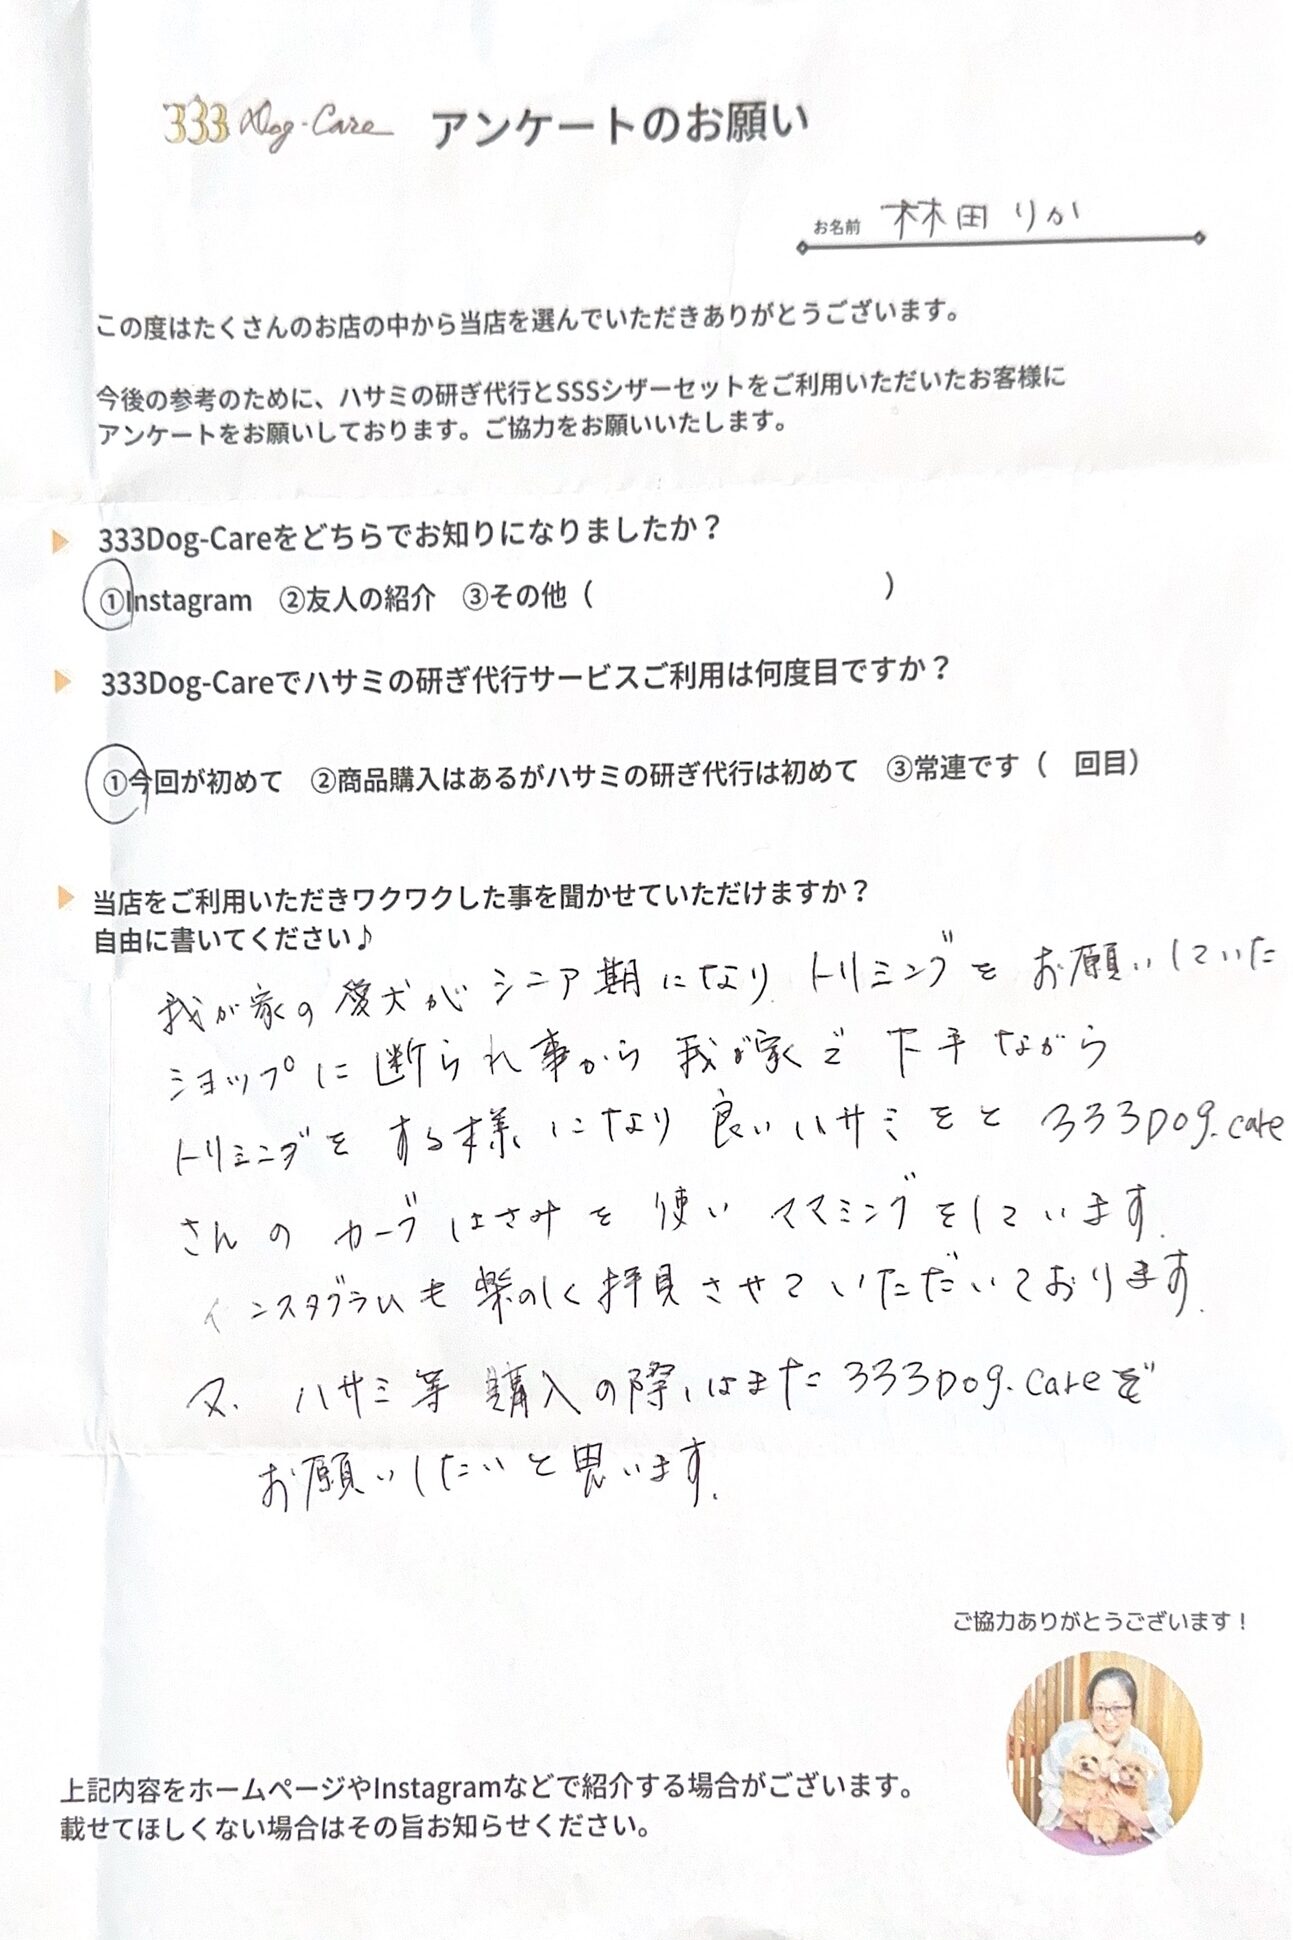 333 Dog-Care アンケートのお願い
お名前 林田りか
この度はたくさんのお店の中から当店を選んでいただきありがとうございます。
今後の参考のために、ハサミの研ぎ代行とSSSシザーセットをご利用いただいたお客様に
アンケートをお願いしております。ご協力をお願いいたします。
333Dog-Careをどちらでお知りになりましたか？
①Instagram ②友人の紹介 ③その他（ ）
333Dog-Careでハサミの研ぎ代行サービスご利用は何度目ですか？
①今回が初めて ②商品購入はあるがハサミの研ぎ代行は初めて ③常連です（ 回目）
当店をご利用いただきワクワクした事を聞かせていただけますか？
自由に書いてください♪
我が家の愛犬がシニア期になり トリミングを お願いしていた
ショップに断られ事から 我が家で 下手ながら
トリミングを する様になり 良いハサミをと 333Dog.care
さんの カーブはさみを 使い ママミングをしています.
インスタグラムも楽のしく拝見させていただいております.
又、ハサミ等 購入の際はまた333Dog.Careを
お願いしたいと思います.
ご協力ありがとうございます！
上記内容をホームページやInstagramなどで紹介する場合がございます。
載せてほしくない場合はその旨お知らせください。